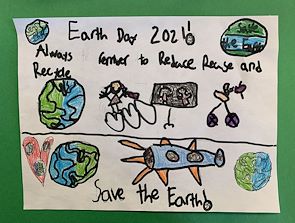 Earth Day 2021!
Save the Earth
Always remember to Reduce Reuse and
Recycle
Save the Earth!